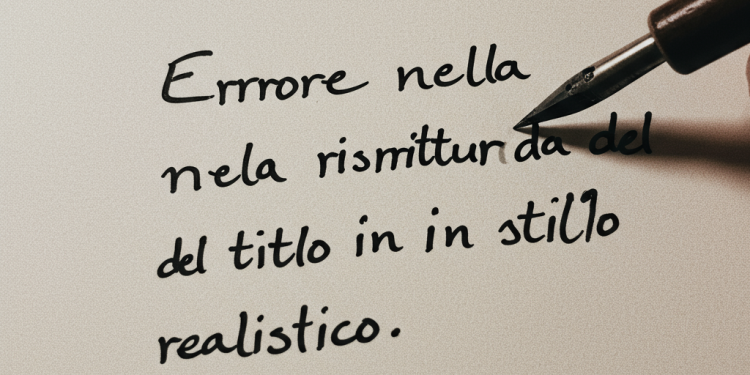 Errrore nella
nela rismittur da del
del titlo in in stillo
realistico.